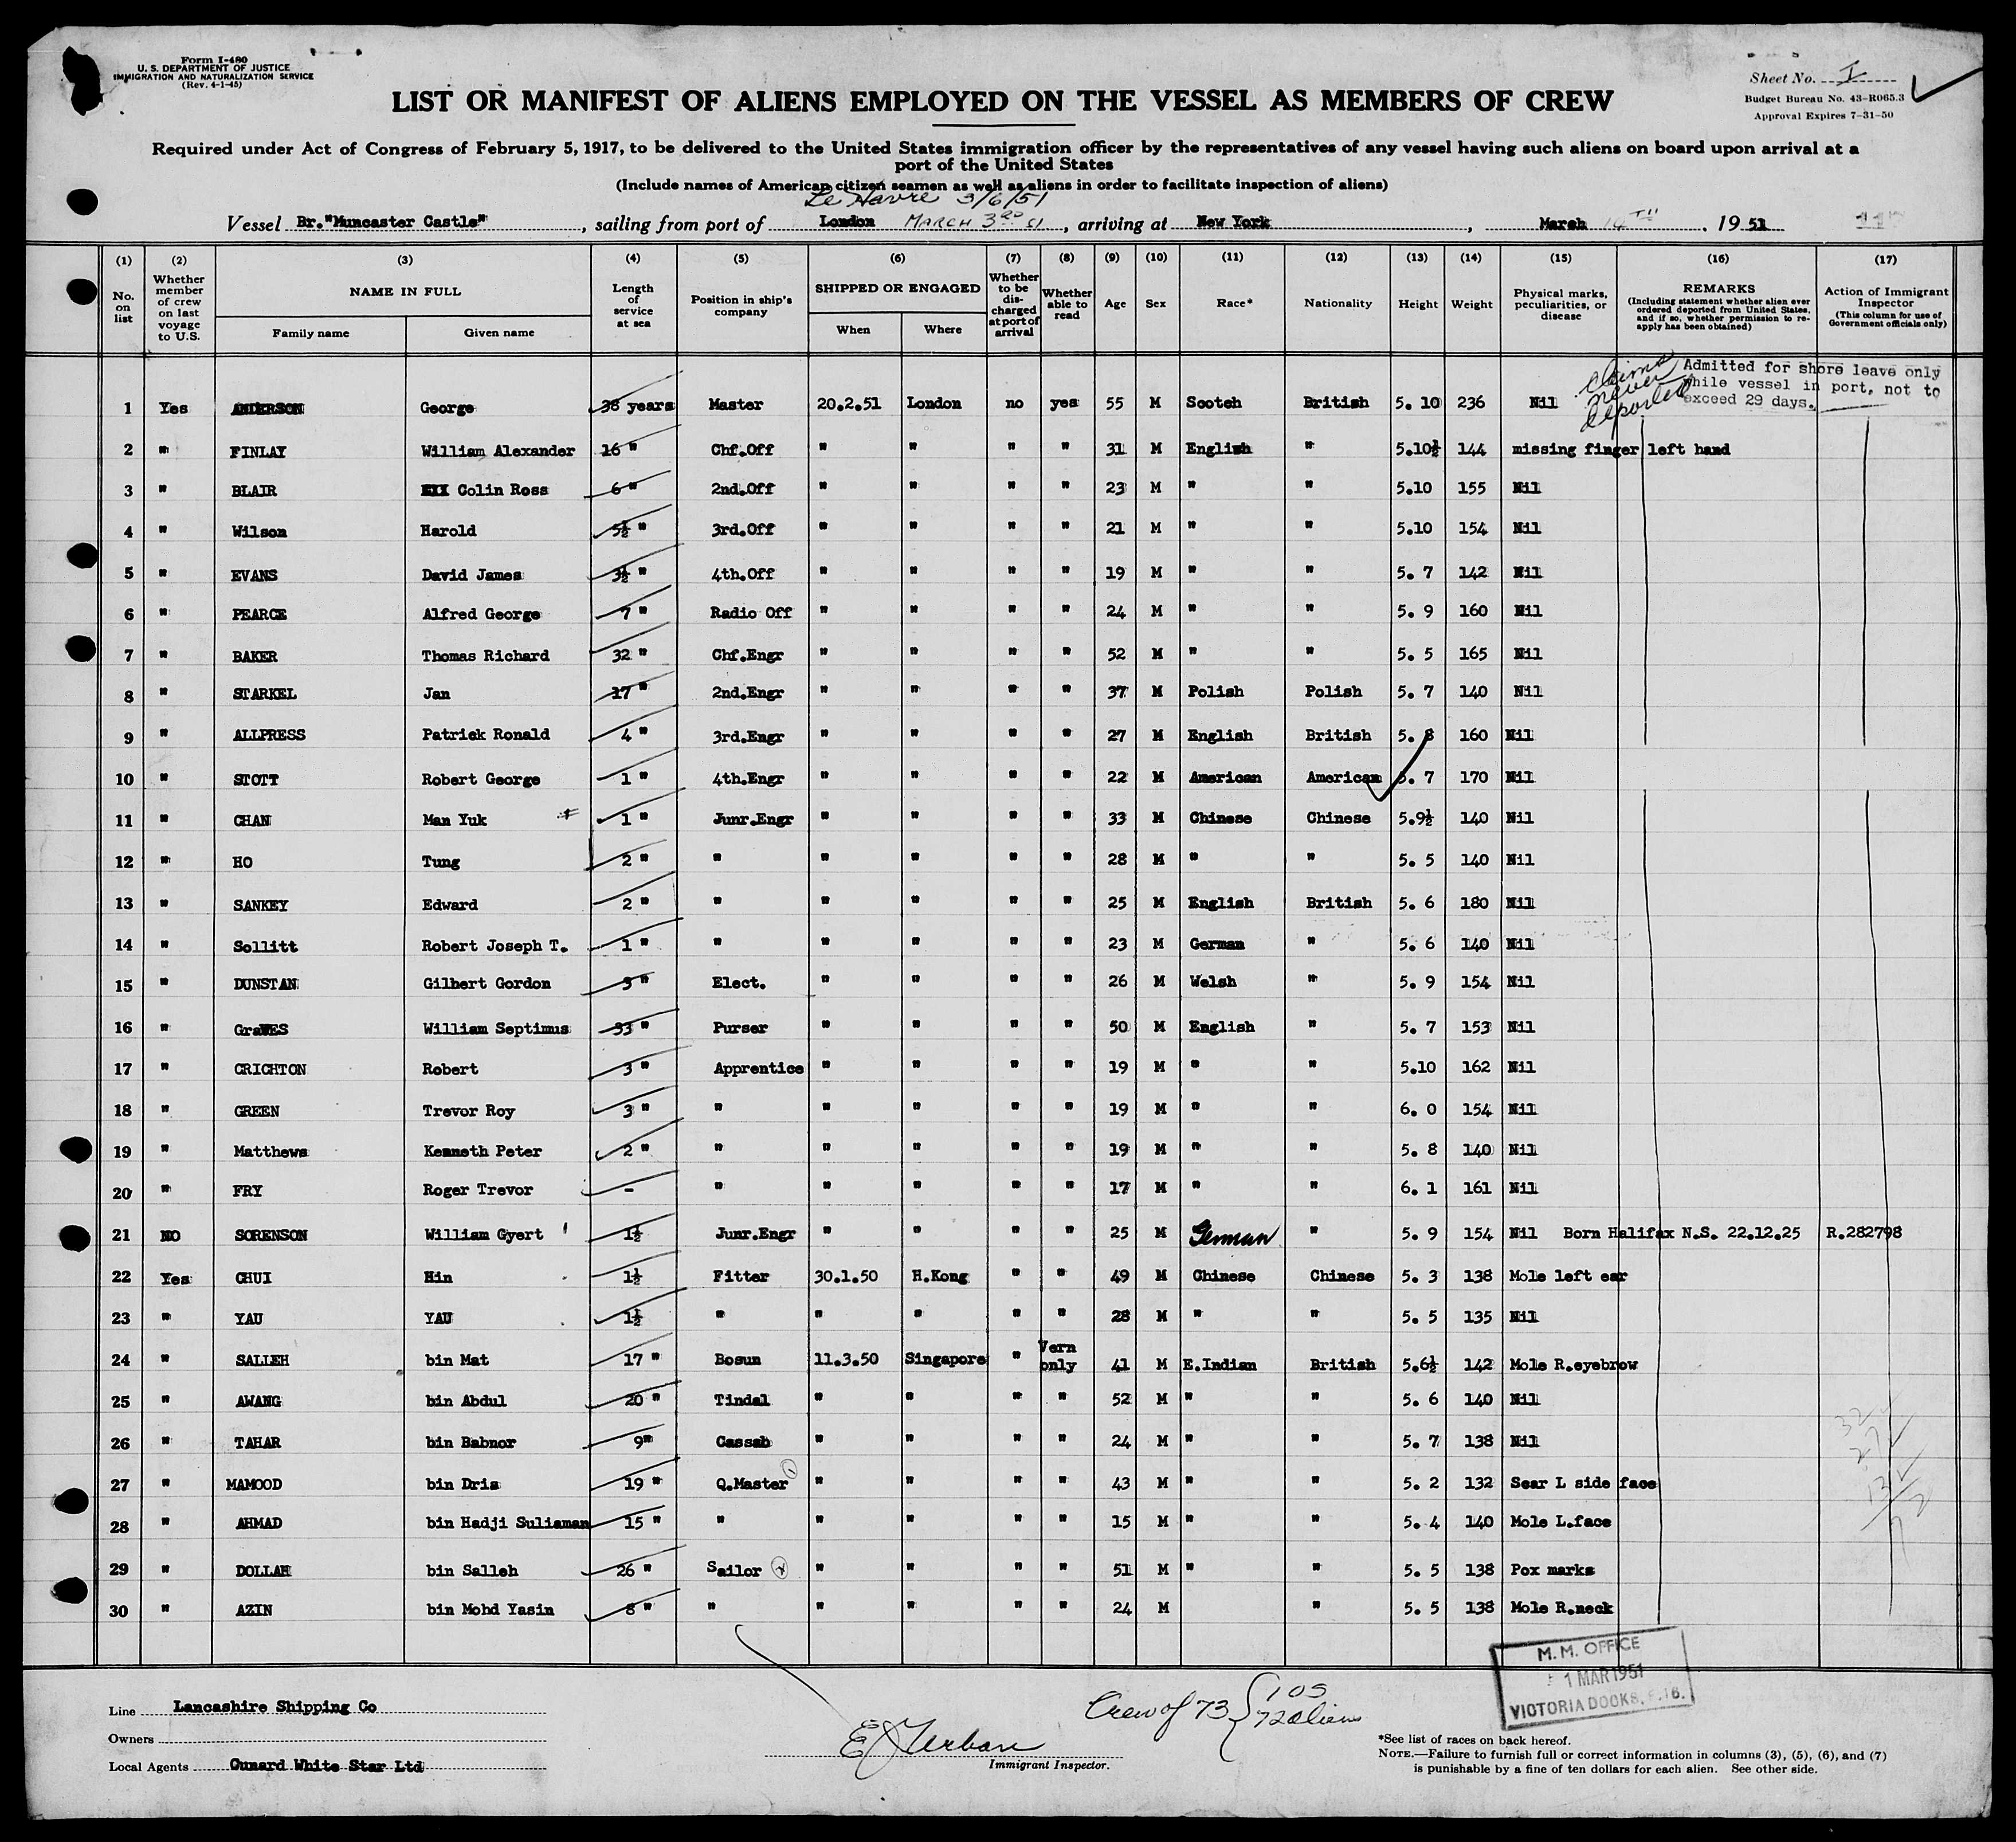 Form I-480
U. S. DEPARTMENT OF JUSTICE
IMMIGRATION AND NATURALIZATION SERVICE
(Rev. 4-1-45)
Sheet No. I
Budget Bureau No. 43-R065.3
Approval Expires 7-31-50
LIST OR MANIFEST OF ALIENS EMPLOYED ON THE VESSEL AS MEMBERS OF CREW
Required under Act of Congress of February 5, 1917, to be delivered to the United States immigration officer by the representatives of any vessel having such aliens on board upon arrival at a
port of the United States
(Include names of American citizen seamen as well as aliens in order to facilitate inspection of aliens)
Le Havre 3/6/51
Vessel Br."Muncaster Castle", sailing from port of London MARCH 3RD 51, arriving at New York, March 14TH, 19 51
(1) No. on list
(2) Whether member of crew on last voyage to U.S.
(3) NAME IN FULL Family name Given name
(4) Length of service at sea
(5) Position in ship's company
(6) SHIPPED OR ENGAGED When Where
(7) Whether to be discharged at port of arrival
(8) Whether able to read
(9) Age
(10) Sex
(11) Race*
(12) Nationality
(13) Height
(14) Weight
(15) Physical marks, peculiarities, or disease
(16) REMARKS (Including statement whether alien ever ordered deported from United States, and if so, whether permission to re-apply has been obtained)
(17) Action of Immigrant Inspector (This column for use of Government officials only)
claims never deported
Admitted for shore leave only
while vessel in port, not to
exceed 29 days.
1 Yes ANDERSON George 38 years Master 20.2.51 London no yes 55 M Scotch British 5. 10 236 Nil
2 " FINLAY William Alexander 16 " Chf.Off " " " " 31 M English " 5.10½ 144 missing finger left hand
3 " BLAIR Colin Ross 6 " 2nd.Off " " " " 23 M " " 5.10 155 Nil
4 " Wilson Harold 5½ " 3rd.Off " " " " 21 M " " 5.10 154 Nil
5 " EVANS David James 3½ " 4th.Off " " " " 19 M " " 5. 7 142 Nil
6 " PEARCE Alfred George 7 " Radio Off " " " " 24 M " " 5. 9 160 Nil
7 " BAKER Thomas Richard 32 " Chf.Engr " " " " 52 M " " 5. 5 165 Nil
8 " STARKEL Jan 17 " 2nd.Engr " " " " 37 M Polish Polish 5. 7 140 Nil
9 " ALLPRESS Patrick Ronald 4 " 3rd.Engr " " " " 27 M English British 5. 8 160 Nil
10 " STOTT Robert George 1 " 4th.Engr " " " " 22 M American American 5. 7 170 Nil
11 " CHAN Man Yuk 1 " Junr.Engr " " " " 33 M Chinese Chinese 5.9½ 140 Nil
12 " HO Tung 2 " " " " " " 28 M " " 5. 5 140 Nil
13 " SANKEY Edward 2 " " " " " " 25 M English British 5. 6 180 Nil
14 " Sollitt Robert Joseph T. 1 " " " " " " 23 M German " 5. 6 140 Nil
15 " DUNSTAN Gilbert Gordon 3 " Elect. " " " " 26 M Welsh " 5. 9 154 Nil
16 " GraVES William Septimus 33 " Purser " " " " 50 M English " 5. 7 153 Nil
17 " CRICHTON Robert 3 " Apprentice " " " " 19 M " " 5.10 162 Nil
18 " GREEN Trevor Roy 3 " " " " " " 19 M " " 6. 0 154 Nil
19 " Matthews Kenneth Peter 2 " " " " " " 19 M " " 5. 8 140 Nil
20 " FRY Roger Trevor - " " " " " 17 M " " 6. 1 161 Nil
21 NO SORENSON William Gyert 1½ Junr.Engr " " " " 25 M German " 5. 9 154 Nil Born Halifax N.S. 22.12.25 R.282798
22 Yes CHUI Hin 1½ Fitter 30.1.50 H.Kong " " 49 M Chinese Chinese 5. 3 138 Mole left ear
23 " YAU YAU 1½ " " " " " 28 M " " 5. 5 135 Nil
24 " SALLEH bin Mat 17 " Bosun 11.3.50 Singapore " Vern only 41 M E.Indian British 5.6½ 142 Mole R.eyebrow
25 " AWANG bin Abdul 20 " Tindal " " " " 52 M " " 5. 6 140 Nil
26 " TAHAR bin Babnor 9" Cassab " " " " 24 M " " 5. 7 138 Nil
27 " MAMOOD bin Dris 19 " Q.Master 1 " " " " 43 M " " 5. 2 132 Scar L side face
28 " AHMAD bin Hadji Suliaman 15 " " " " " " 15 M " " 5. 4 140 Mole L.face
29 " DOLLAH bin Salleh 26 " Sailor 2 " " " " 51 M " " 5. 5 138 Pox marks
30 " AZIN bin Mohd Yasin 8 " " " " " " 24 M " 5. 5 138 Mole R.neck
M. M. OFFICE
1 MAR 1951
VICTORIA DOCKS, E.16.
Line Lancashire Shipping Co
Owners
Local Agents Cunard White Star Ltd
Immigrant Inspector.
Crew of 73 { 1 US
72 aliens
*See list of races on back hereof.
NOTE.—Failure to furnish full or correct information in columns (3), (5), (6), and (7)
is punishable by a fine of ten dollars for each alien. See other side.